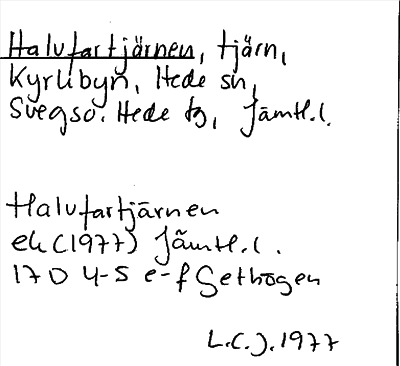 Halvfartjärnen, tjärn,
Kyrkbyn, Hede sn,
Svegs o. Hede tg, Jämtl. l.
Halvfartjärnen
ek (1977) Jämtl. l.
17 D 4-5 e-f Gethögen
L.C.J. 1977